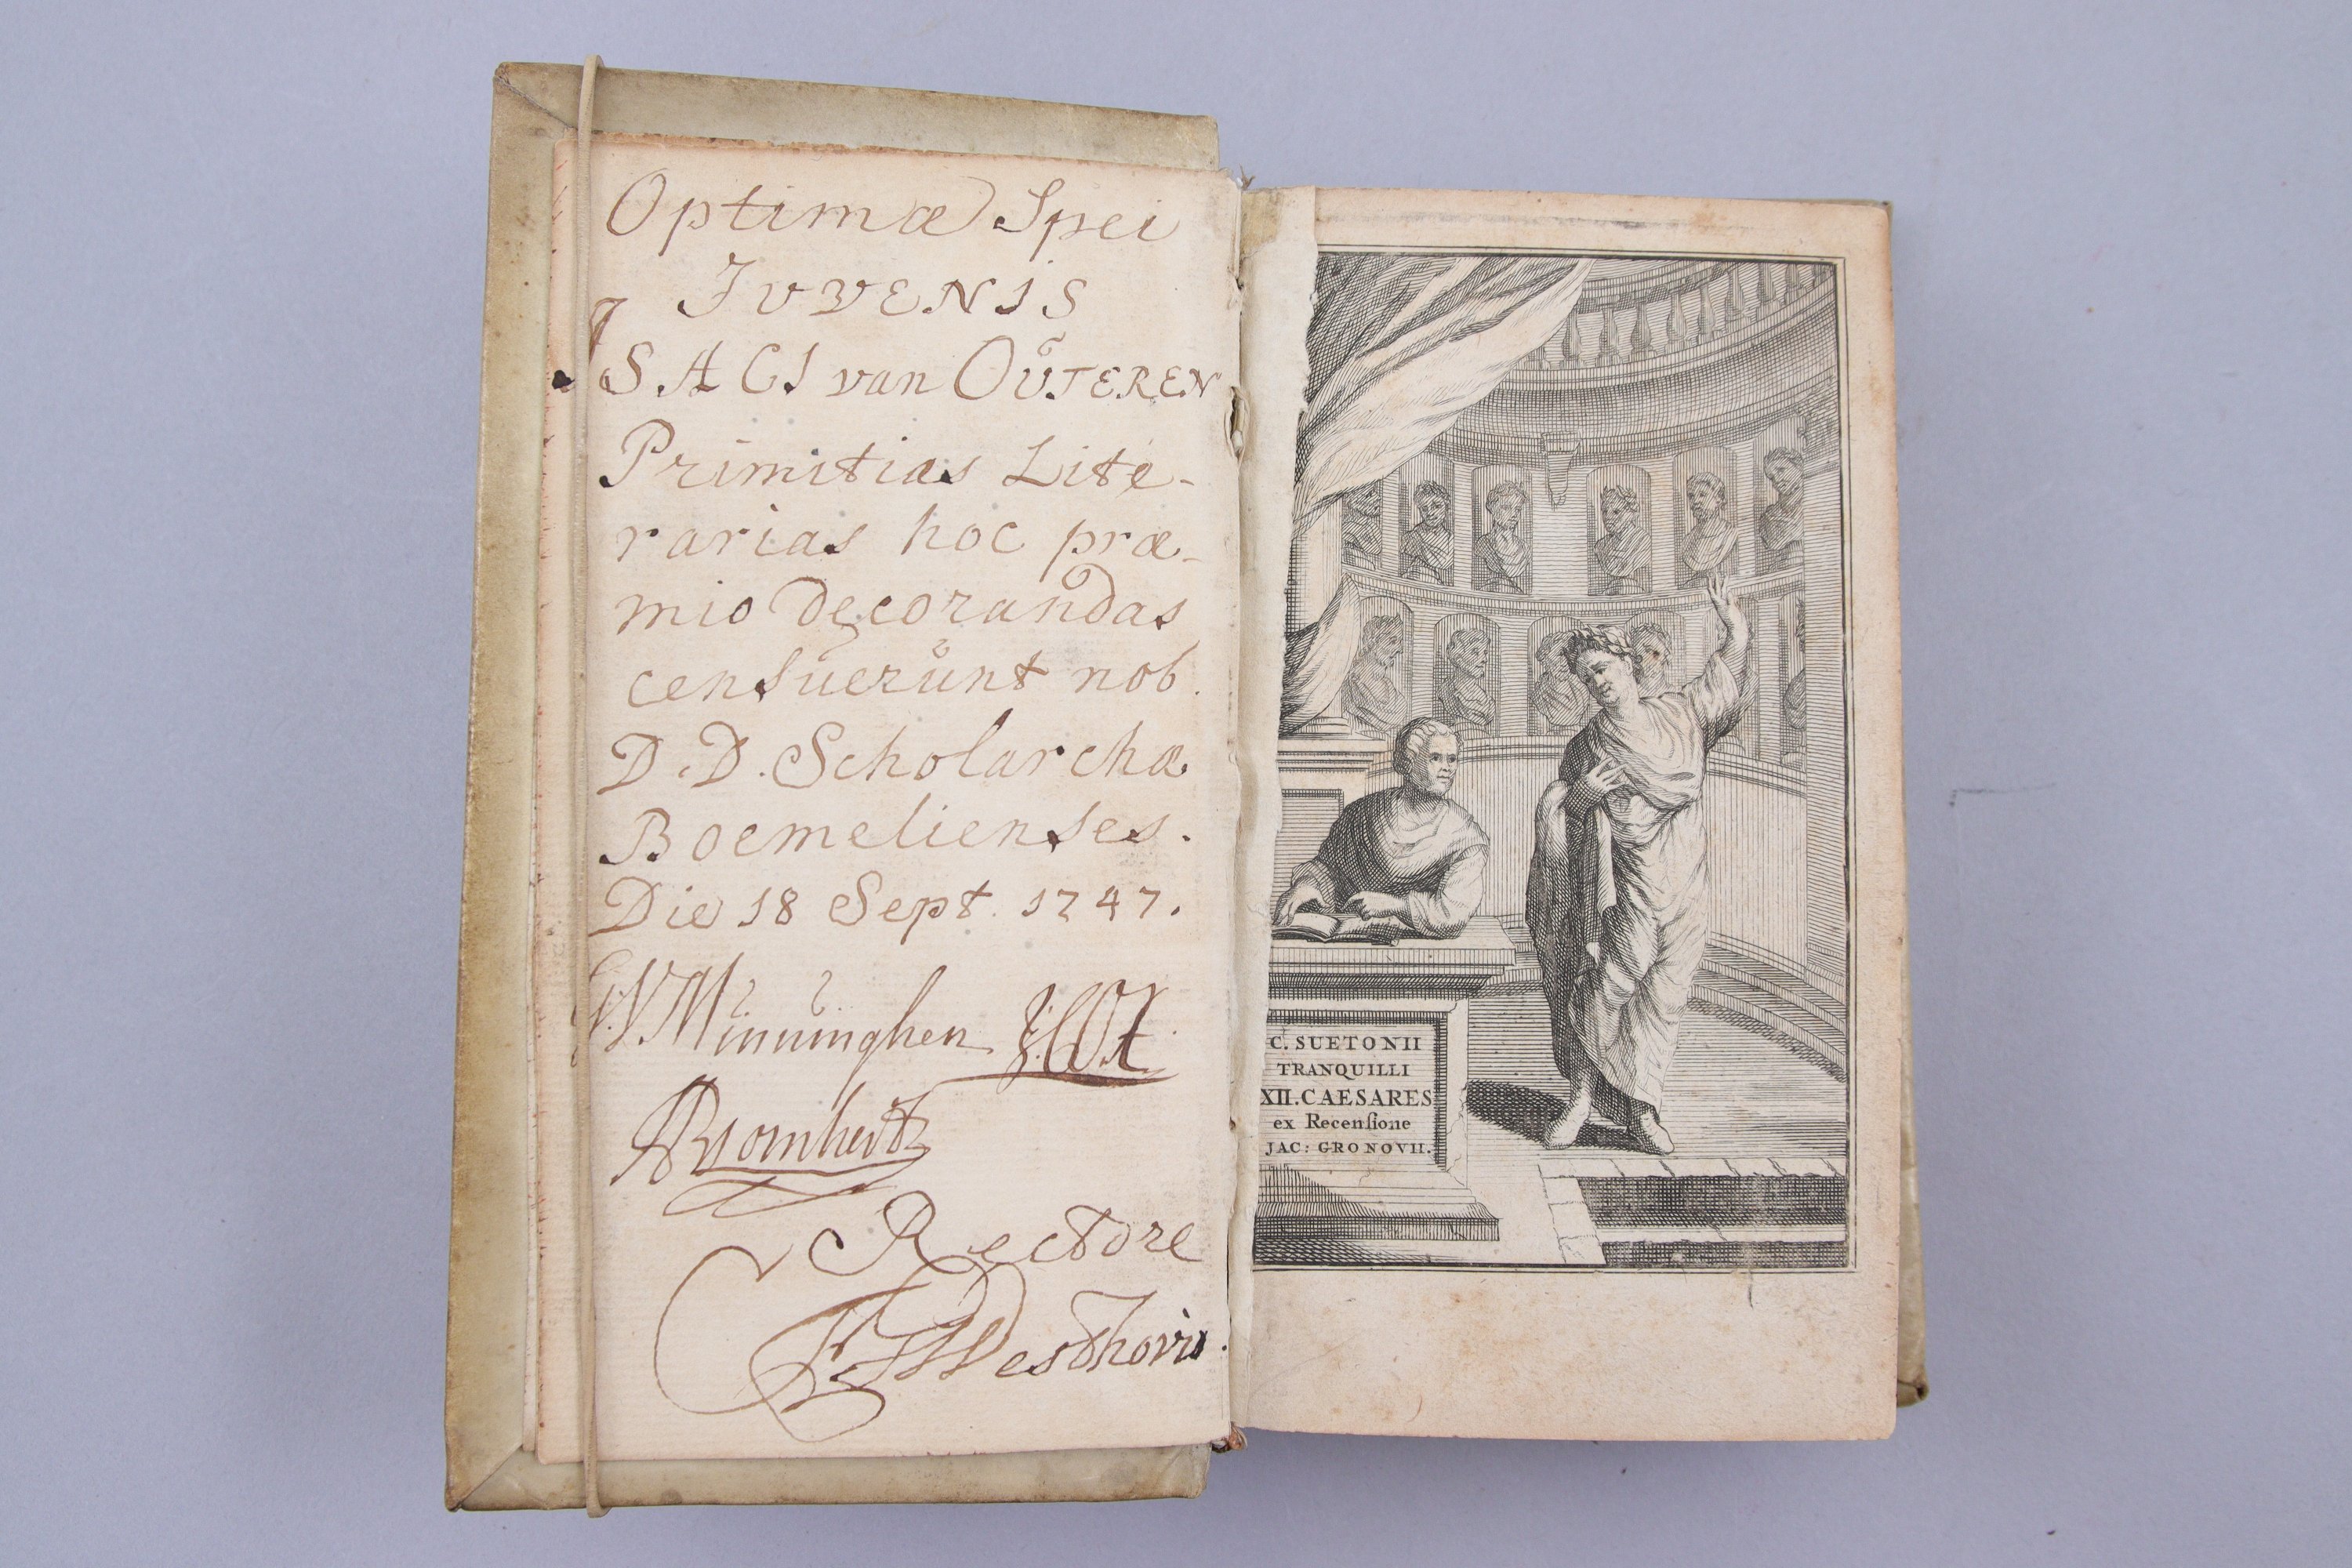 Optimæ Spei
JUVENIS
ISACI van OUTEREN
Primitias Lite-
rarias hoc præ-
mio decorandas
censuerunt nob.
D.D. Scholarchæ
Boemelienses.
Die 18 Sept. 1747.
Rectore
Westhovio.
C. SUETONII
TRANQUILLI
XII. CAESARES
ex Recensione
JAC: GRONOVII.